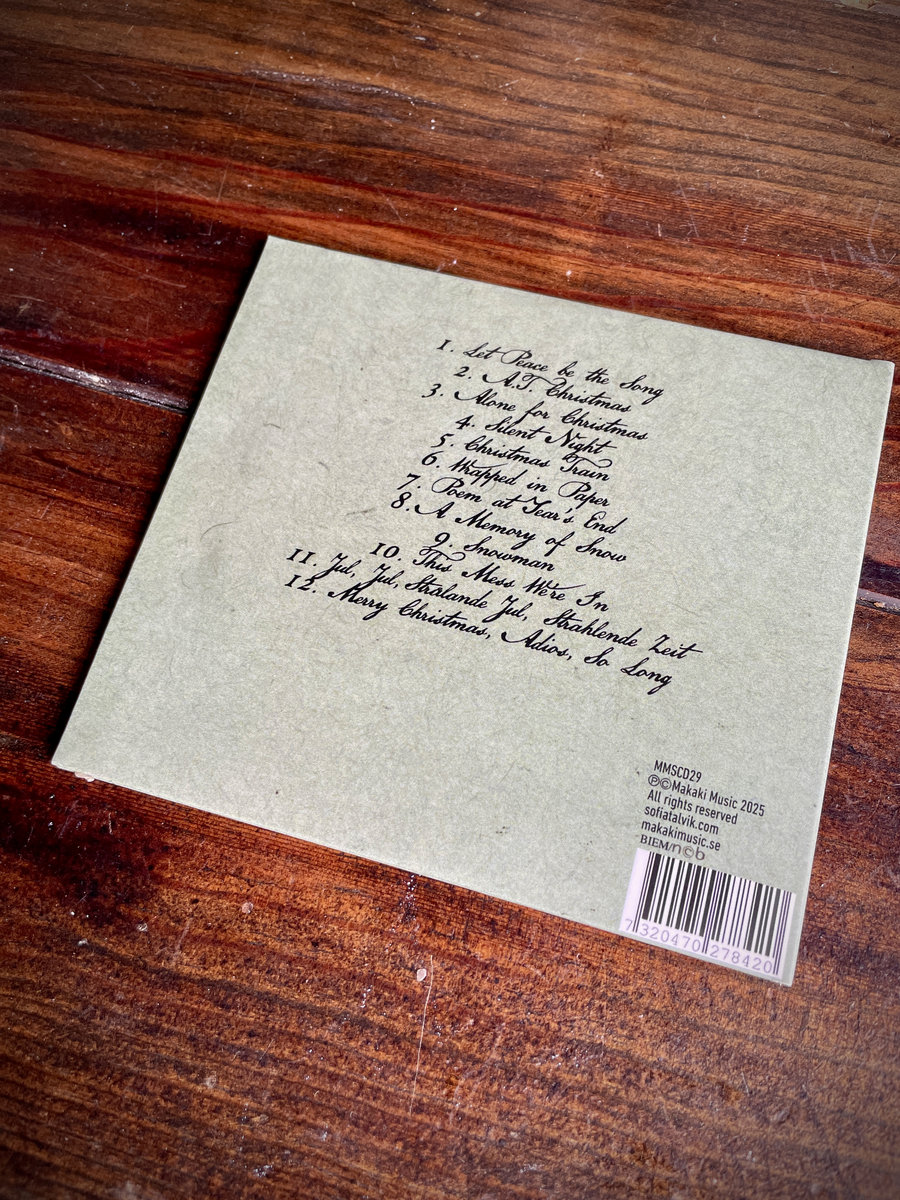 1. Let Peace be the Song
2. A.T. Christmas
3. Alone for Christmas
4. Silent Night
5. Christmas Train
6. Wrapped in Paper
7. Poem at Year's End
8. A Memory of Snow
9. Snowman
10. This Mess We're In
11. Jul, Jul, Strålande Jul, Strahlende Zeit
12. Merry Christmas, Adios, So Long
MMSCD29
℗©Makaki Music 2025
All rights reserved
sofiatalvik.com
makakimusic.se
BIEM/n©b
7 320470 278420